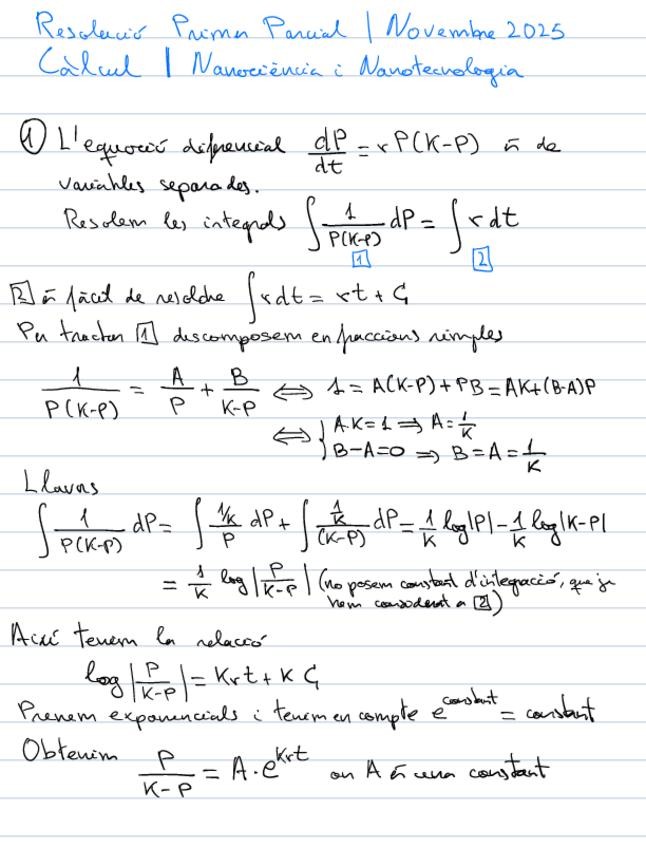 Resolució Primer Parcial | Novembre 2025
Càlcul | Nanociència i Nanotecnologia
① L'equació diferencial dP/dt = r P(K-P) és de
variables separades.
Resolem les integrals ∫ 1/(P(K-P)) dP = ∫ r dt
[1] [2]
[2] és fàcil de resoldre ∫ r dt = rt + C₁
Per tractar [1] descomposem en fraccions simples
1/(P(K-P)) = A/P + B/(K-P) ⟺ 1 = A(K-P) + PB = AK + (B-A)P
⟺ { A·K = 1 ⟹ A = 1/K
B-A = 0 ⟹ B = A = 1/K
Llavors
∫ 1/(P(K-P)) dP = ∫ (1/K)/P dP + ∫ (1/K)/(K-P) dP = 1/K log|P| - 1/K log|K-P|
= 1/K log|P/(K-P)| (no posem constant d'integració, que ja
hem considerat a [2])
Així tenem la relació
log|P/(K-P)| = Krt + K C₁
Prenem exponencials i tenim en compte e^constant = constant
Obtenim P/(K-P) = A·e^Krt on A és una constant